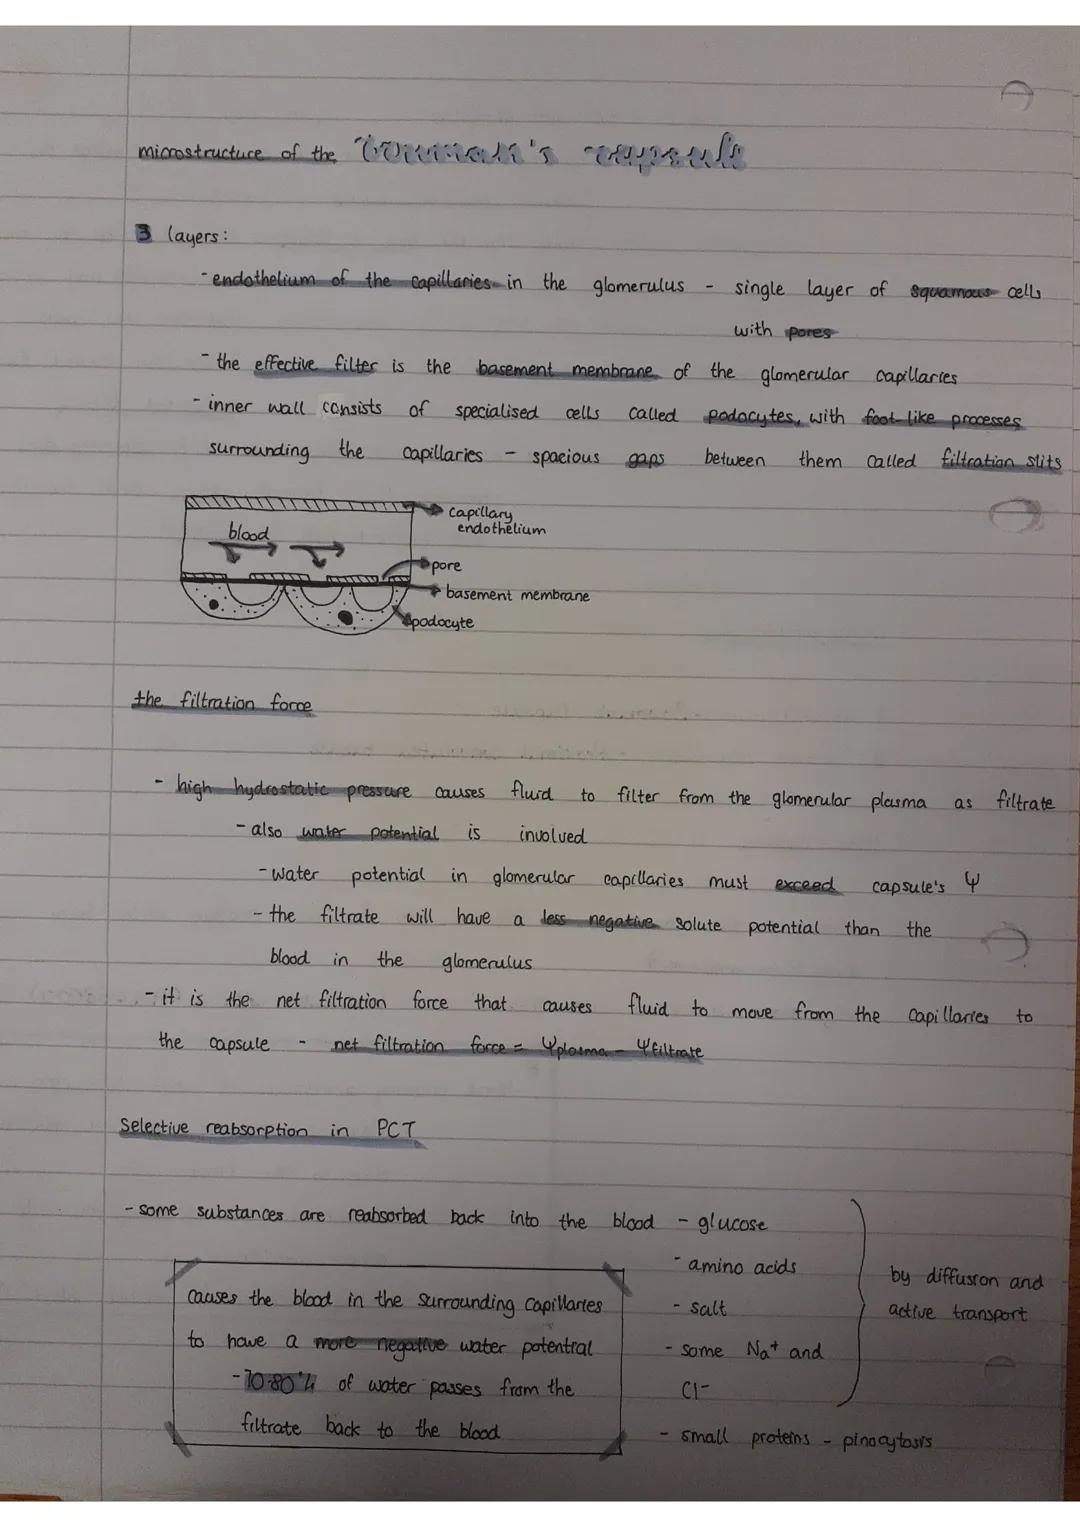 microstructure of the Bowman's capsule
3 layers:
- endothelium of the capillaries in the glomerulus - single layer of squamous cells
with pores
- the effective filter is the basement membrane of the glomerular capillaries
- inner wall consists of specialised cells called podocytes, with foot-like processes
surrounding the capillaries - spacious gaps between them called filtration slits
capillary
endothelium
blood
pore
basement membrane
podocyte
the filtration force
- high hydrostatic pressure causes fluid to filter from the glomerular plasma as filtrate
- also water potential is involved
- water potential in glomerular capillaries must exceed capsule's Ψ
- the filtrate will have a less negative solute potential than the
blood in the glomerulus
- it is the net filtration force that causes fluid to move from the capillaries to
the capsule - net filtration force = Ψplasma - Ψfiltrate
Selective reabsorption in PCT
- some substances are reabsorbed back into the blood - glucose
- amino acids
- salt
- some Na+ and
Cl-
- small proteins - pinocytosis
by diffusion and
active transport
causes the blood in the surrounding capillaries
to have a more negative water potential
- 70-80% of water passes from the
filtrate back to the blood